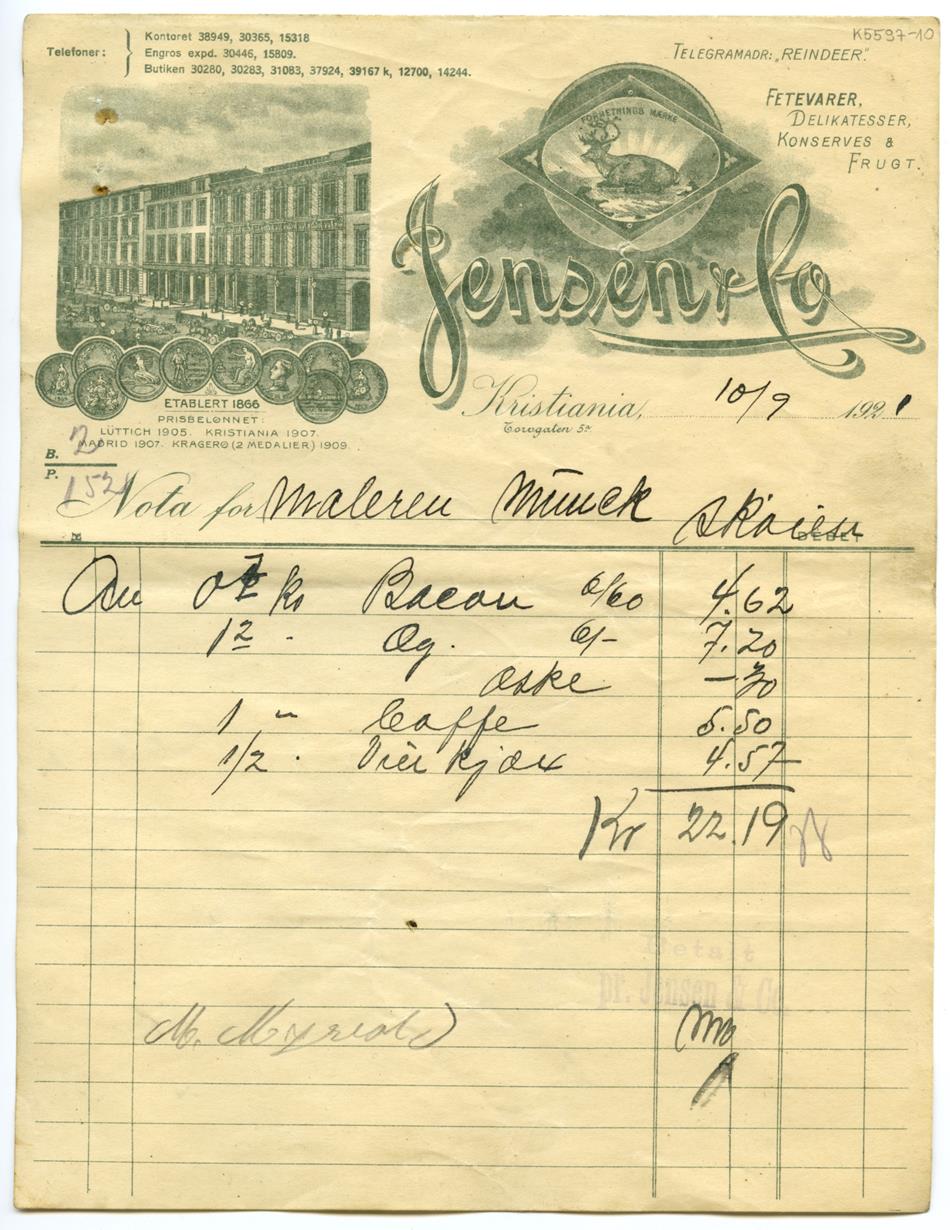 K5597-10
Telefoner:
Kontoret 38949, 30365, 15318
Engros expd. 30446, 15809.
Butiken 30280, 30283, 31083, 37924, 39167 k, 12700, 14244.
TELEGRAMADR: „REINDEER".
FETEVARER,
DELIKATESSER,
KONSERVES &
FRUGT.
FORRETNINGS MÆRKE
Jensen & Co
ETABLERT 1866
PRISBELØNNET:
LÜTTICH 1905. KRISTIANIA 1907.
MADRID 1907. KRAGERØ (2 MEDALIER) 1909.
Kristiania, 10/9 1921
Torvgaten 5a
B. 2
P. 152
Nota for Maleren Münck Skøien
DEBET
An 0 7 ko Bacon 6/60 4.62
1 2 " Og. 6/- 7.20
Æske - 30
1 " Caffe 5.50
1/2 " kjæx 4.57
Kr 22.19
Betalt
pr. Jensen & Co.